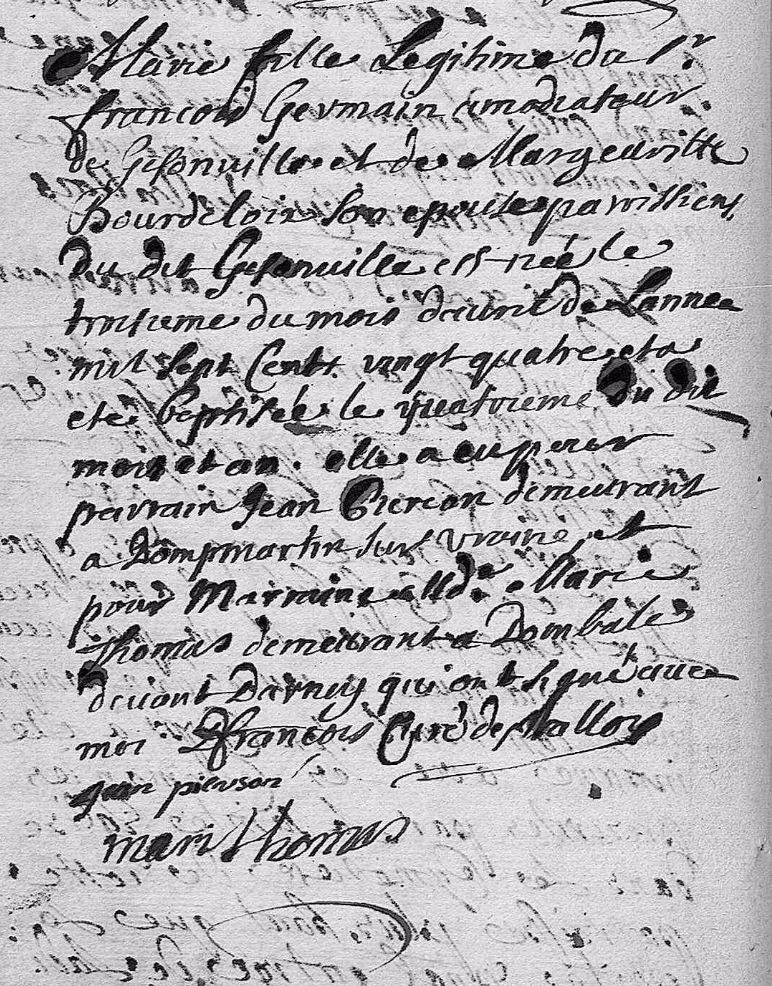 Marie fille Legitime du Sr
francois Germain amodiateur
de Gesonville et de Margeuritte
Bourdeloix Son epouse parroissiens
du dit Gesonville est née le
troisieme du mois d'auril de Lannee
mil Sept Cents vingt quatre et a
eté baptisée le quatrieme du dit
mois et an. elle a eu pour
parrain Jean Pierson demeurant
a Dompmartin sur vraine et
pour Marraine Md.e Marie
Thomas demeurant a Dombale
deuant Darney qui ont Signé auec
moi Dfrancois Curé de
jean pierson
mari thomas